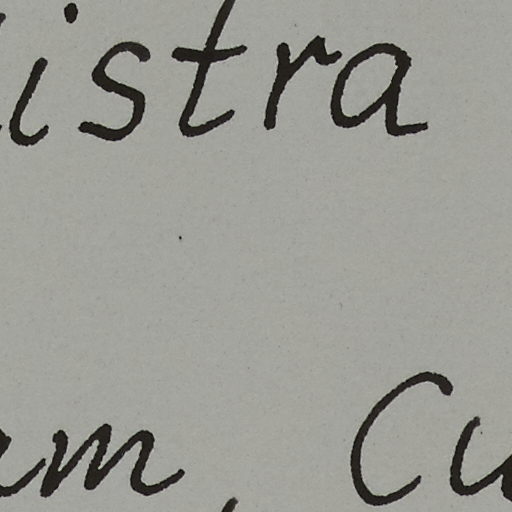 istra
am, Cu